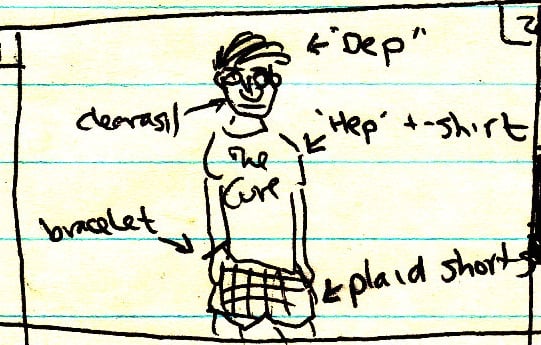 2
"Dep"
clearasil
'Hep' t-shirt
The
Cure
bracelet
plaid shorts